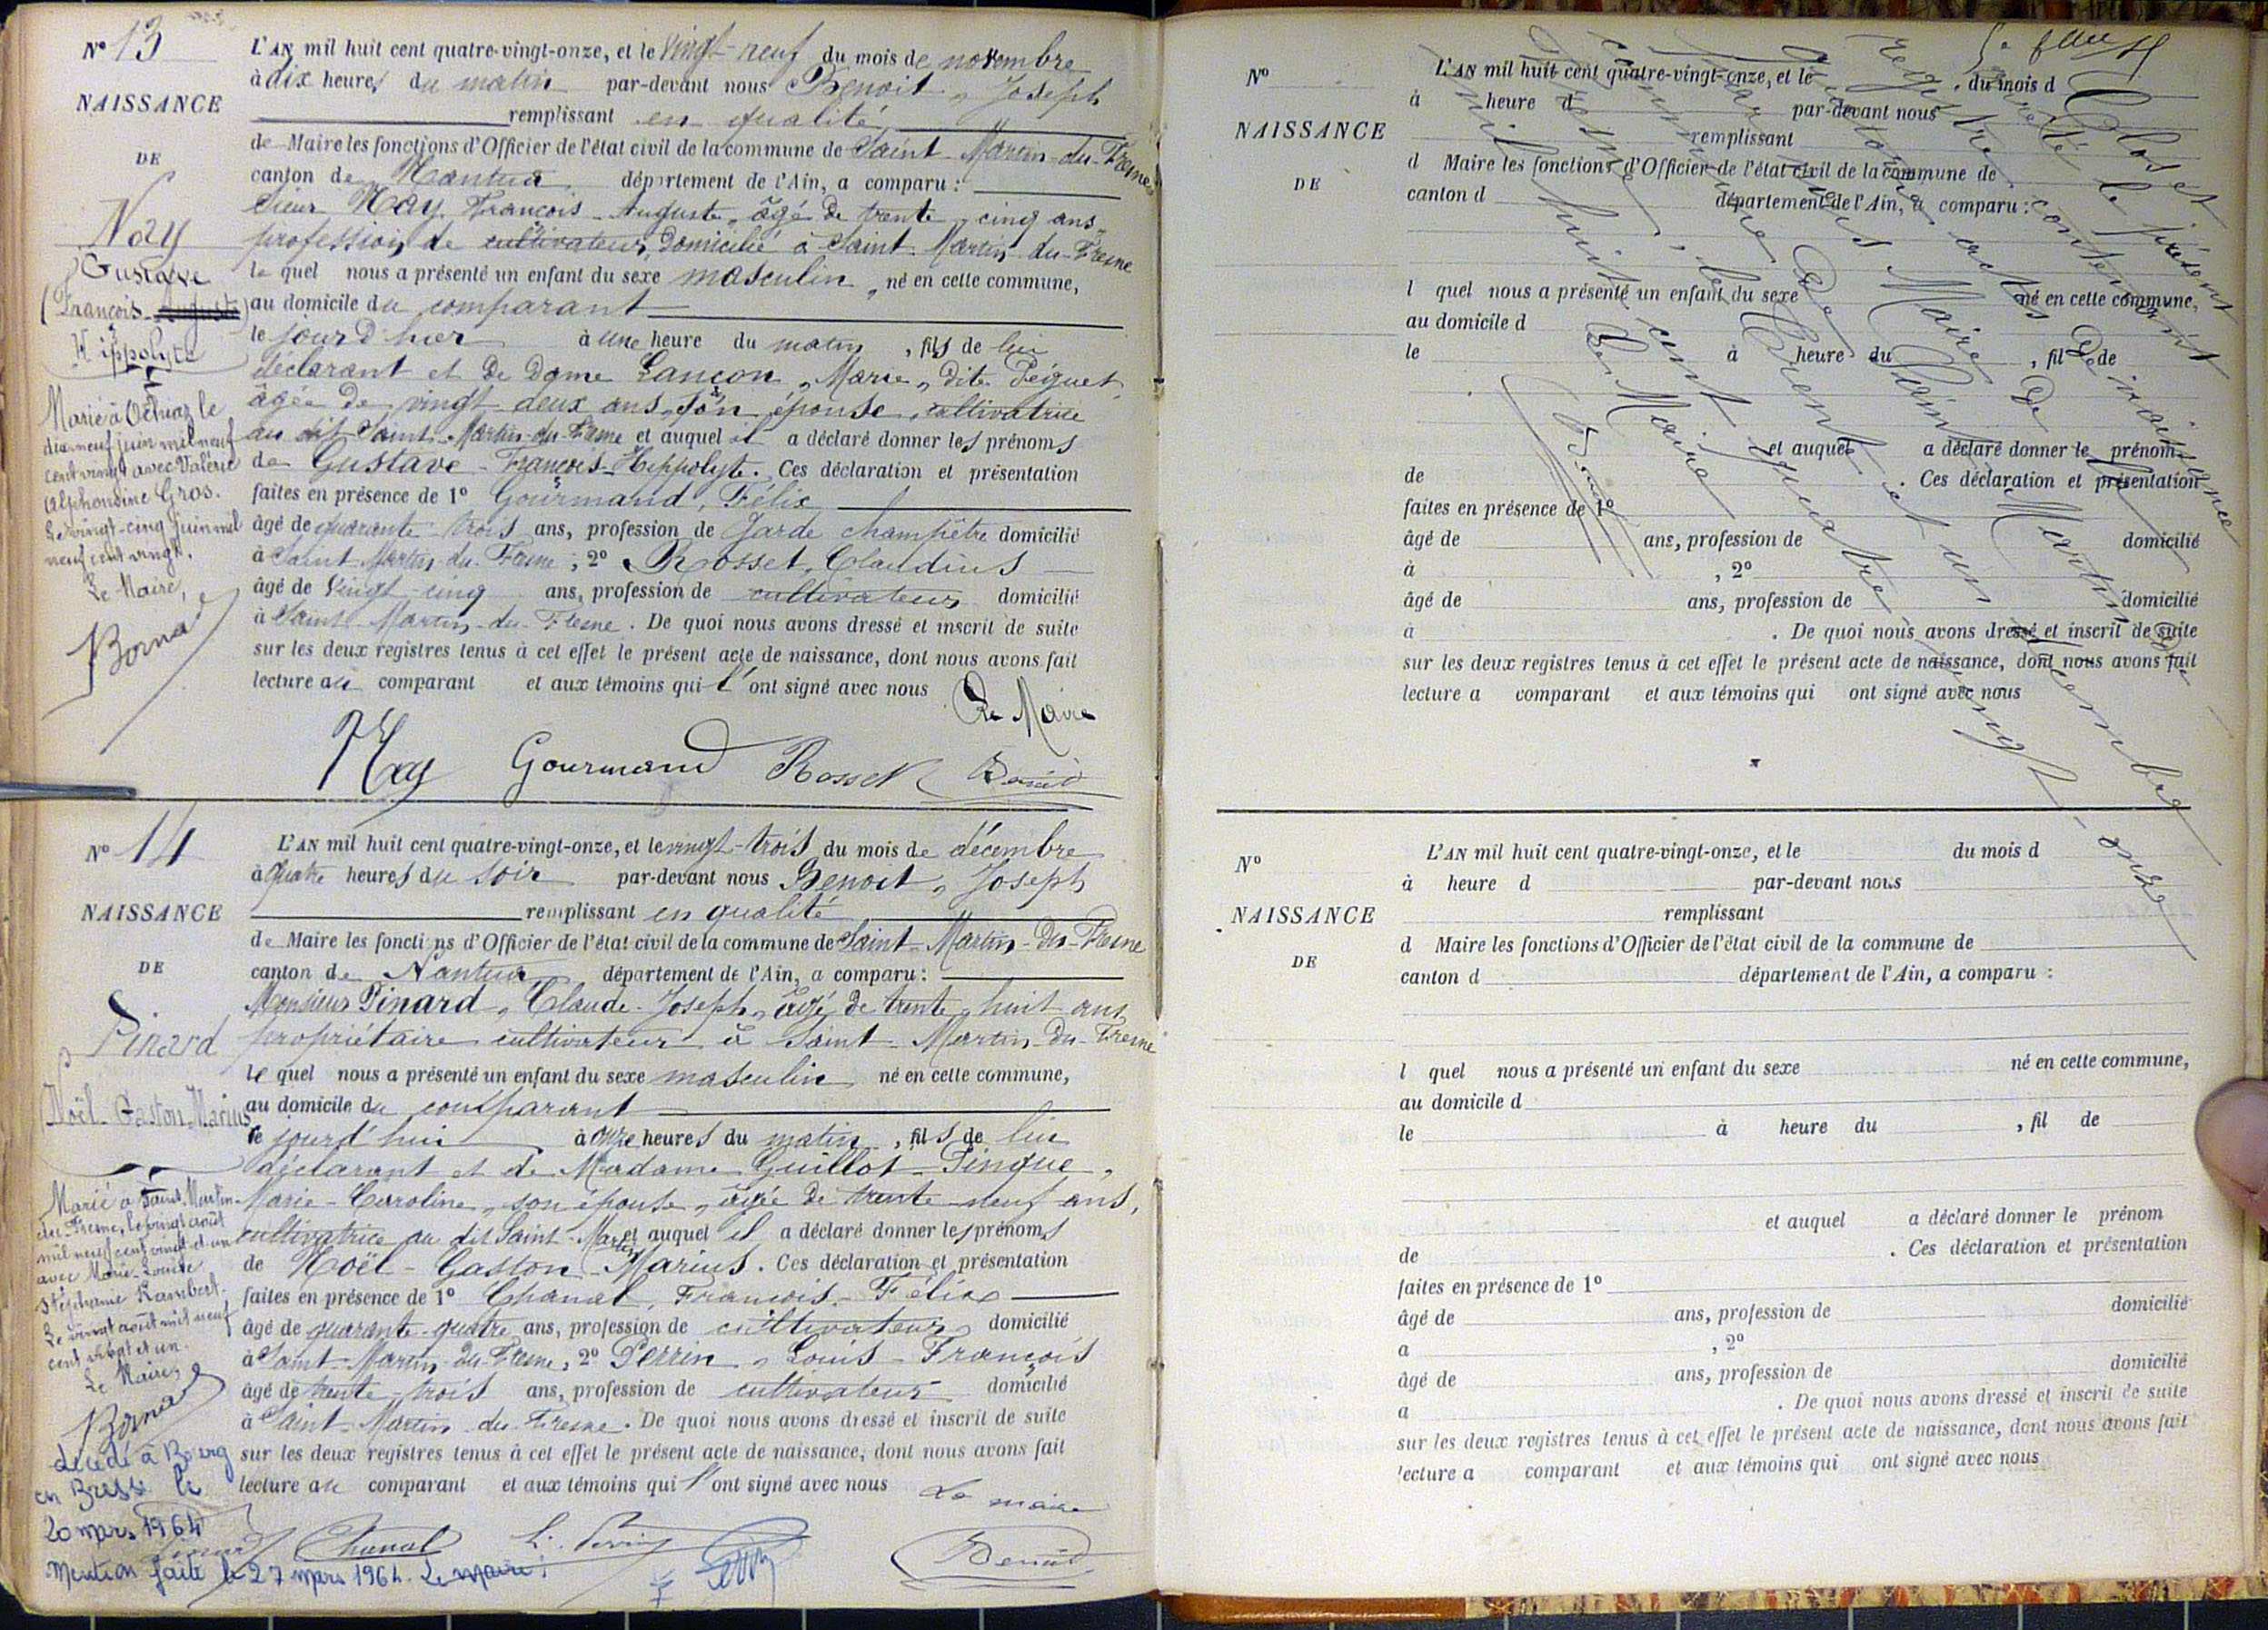 N° 13
NAISSANCE
DE
Nay
Gustave
(François-Auguste)
Hippolyte
Marié à Ochiaz le
dix-neuf juin mil neuf
cent vingt avec Valérie
Alphonsine Gros.
Le vingt-cinq juin mil
neuf cent vingt.
Le Maire,
Borna
L'AN mil huit cent quatre-vingt-onze, et le vingt-neuf du mois de novembre
à dix heures du matin par-devant nous Benoit, Joseph
remplissant en qualité
de Maire les fonctions d'Officier de l'état civil de la commune de Saint-Martin-du-Fresne
canton de Nantua département de l'Ain, a comparu :
Sieur Nay François-Auguste, âgé de trente-cinq ans,
profession de cultivateur, domicilié à Saint-Martin-du-Fresne
le quel nous a présenté un enfant du sexe masculin, né en cette commune,
au domicile du comparant
le jour d'hier à une heure du matin, fils de lui
déclarant et de Dame Lançon, Marie, dite Péguet
âgée de vingt-deux ans, son épouse, cultivatrice
au dit Saint-Martin-du-Fresne et auquel il a déclaré donner les prénoms
de Gustave-François-Hippolyte. Ces déclaration et présentation
faites en présence de 1° Gourmand, Félix
âgé de quarante-trois ans, profession de Garde champêtre domicilié
à Saint-Martin-du-Fresne ; 2° Rosset, Claudius
âgé de vingt-cinq ans, profession de cultivateur domicilié
à Saint-Martin-du-Fresne. De quoi nous avons dressé et inscrit de suite
sur les deux registres tenus à cet effet le présent acte de naissance, dont nous avons fait
lecture au comparant et aux témoins qui l'ont signé avec nous
Le Maire
Nay Gourmand Rosset Benoit
N° 14
NAISSANCE
DE
Pinard
Noël-Gaston-Marius
Marié à Saint-Martin-
du-Fresne, le vingt août
mil neuf cent vingt et un
avec Marie-Louise
Stéphanie Rambert.
Le vingt août mil neuf
cent vingt et un.
Le Maire,
Borna
décédé à Bourg
en Bresse le
20 mars 1964
Mention faite le 27 mars 1964. Le Maire :
L'AN mil huit cent quatre-vingt-onze, et le vingt-trois du mois de décembre
à quatre heures du soir par-devant nous Benoit, Joseph
remplissant en qualité
de Maire les fonctions d'Officier de l'état civil de la commune de Saint-Martin-du-Fresne
canton de Nantua département de l'Ain, a comparu :
Monsieur Pinard, Claude-Joseph, âgé de trente-huit ans
propriétaire cultivateur à Saint-Martin-du-Fresne
le quel nous a présenté un enfant du sexe masculin né en cette commune,
au domicile du comparant
le jourd'hui à onze heures du matin, fils de lui
déclarant et de Madame Guillot-Pingue,
Marie-Caroline, son épouse, âgée de trente-neuf ans,
cultivatrice au dit Saint-Martin et auquel il a déclaré donner les prénoms
de Noël-Gaston-Marius. Ces déclaration et présentation
faites en présence de 1° Chanal, François-Félix
âgé de quarante-quatre ans, profession de cultivateur domicilié
à Saint-Martin-du-Fresne, 2° Perrin, Louis-François
âgé de trente-trois ans, profession de cultivateur domicilié
à Saint-Martin-du-Fresne. De quoi nous avons dressé et inscrit de suite
sur les deux registres tenus à cet effet le présent acte de naissance, dont nous avons fait
lecture au comparant et aux témoins qui l'ont signé avec nous
Le maire
Pinard Chanal L. Perrin Benoit
N°
NAISSANCE
DE
L'AN mil huit cent quatre-vingt-onze, et le du mois d
à heure d par-devant nous
remplissant
d Maire les fonctions d'Officier de l'état civil de la commune de
canton d département de l'Ain, a comparu :
l quel nous a présenté un enfant du sexe né en cette commune,
au domicile d
le à heure du , fil de
et auquel a déclaré donner le prénom
de . Ces déclaration et présentation
faites en présence de 1°
âgé de ans, profession de domicilié
à , 2°
âgé de ans, profession de domicilié
à . De quoi nous avons dressé et inscrit de suite
sur les deux registres tenus à cet effet le présent acte de naissance, dont nous avons fait
lecture a comparant et aux témoins qui ont signé avec nous
Clos et arrêté le présent
registre contenant
quatorze actes de naissance
par nous Maire de la
commune de Saint-Martin-du-
Fresne, le trente et un décembre
mil huit cent quatre-vingt-onze
Le Maire
Benoit
N°
NAISSANCE
DE
L'AN mil huit cent quatre-vingt-onze, et le du mois d
à heure d par-devant nous
remplissant
d Maire les fonctions d'Officier de l'état civil de la commune de
canton d département de l'Ain, a comparu :
l quel nous a présenté un enfant du sexe né en cette commune,
au domicile d
le à heure du , fil de
et auquel a déclaré donner le prénom
de . Ces déclaration et présentation
faites en présence de 1°
âgé de ans, profession de domicilié
a , 2°
âgé de ans, profession de domicilié
a . De quoi nous avons dressé et inscrit de suite
sur les deux registres tenus à cet effet le présent acte de naissance, dont nous avons fait
lecture a comparant et aux témoins qui ont signé avec nous